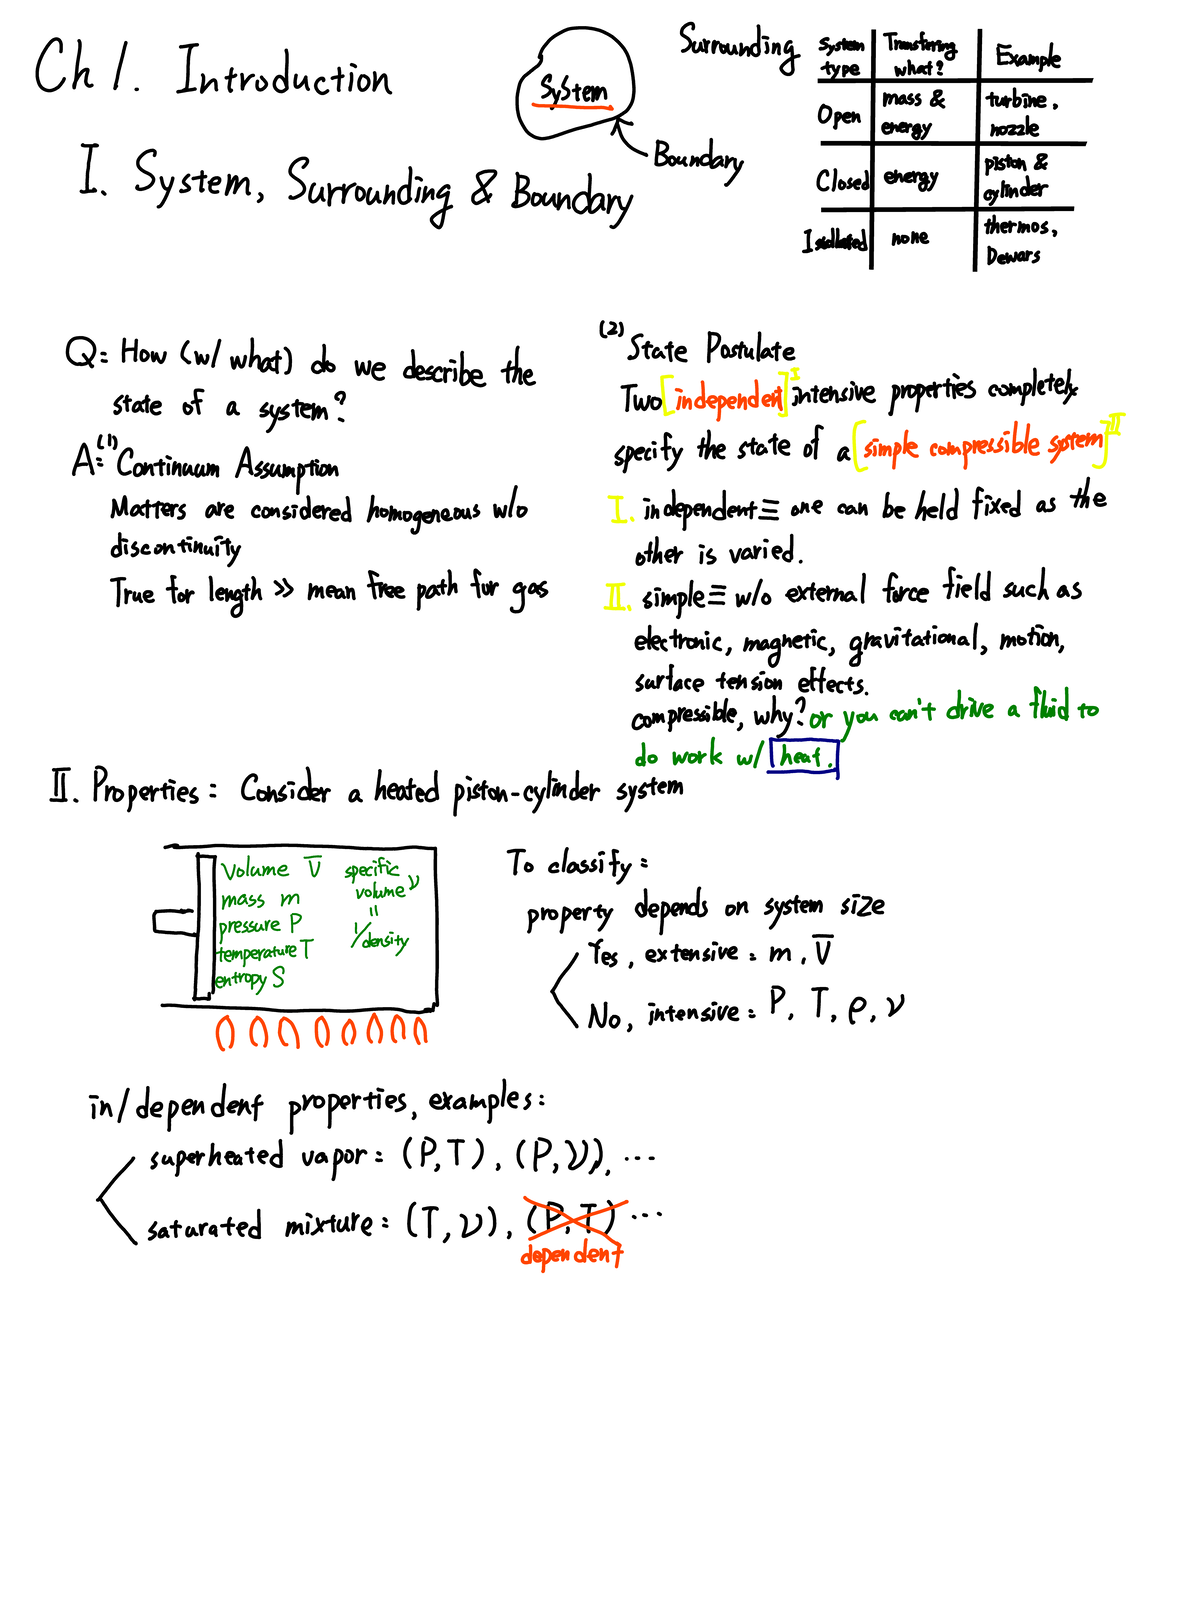 Ch 1. Introduction
System
Boundary
Surrounding
System type | Transferring what? | Example
Open | mass & energy | turbine, nozzle
Closed | energy | piston & cylinder
Isollated | none | thermos, Dewars
I. System, Surrounding & Boundary
Q: How (w/ what) do we describe the
state of a system?
A: (1) Continuum Assumption
Matters are considered homogeneous w/o
discontinuity
True for length >> mean free path for gas
(2) State Postulate
Two [independent]^I intensive properties completely
specify the state of a [simple compressible system]^II
I. independent ≡ one can be held fixed as the
other is varied.
II. simple ≡ w/o external force field such as
electronic, magnetic, gravitational, motion,
surface tension effects.
compressible, why? or you can't drive a fluid to
do work w/ heat.
II. Properties: Consider a heated piston-cylinder system
Volume V̅
mass m
pressure P
temperature T
entropy S
specific
volume ν
=
1/density
To classify:
property depends on system size
Yes, extensive: m, V̅
No, intensive: P, T, ρ, ν
in/dependent properties, examples:
superheated vapor: (P,T), (P,ν), ...
saturated mixture: (T,ν), (P,T) ...
dependent